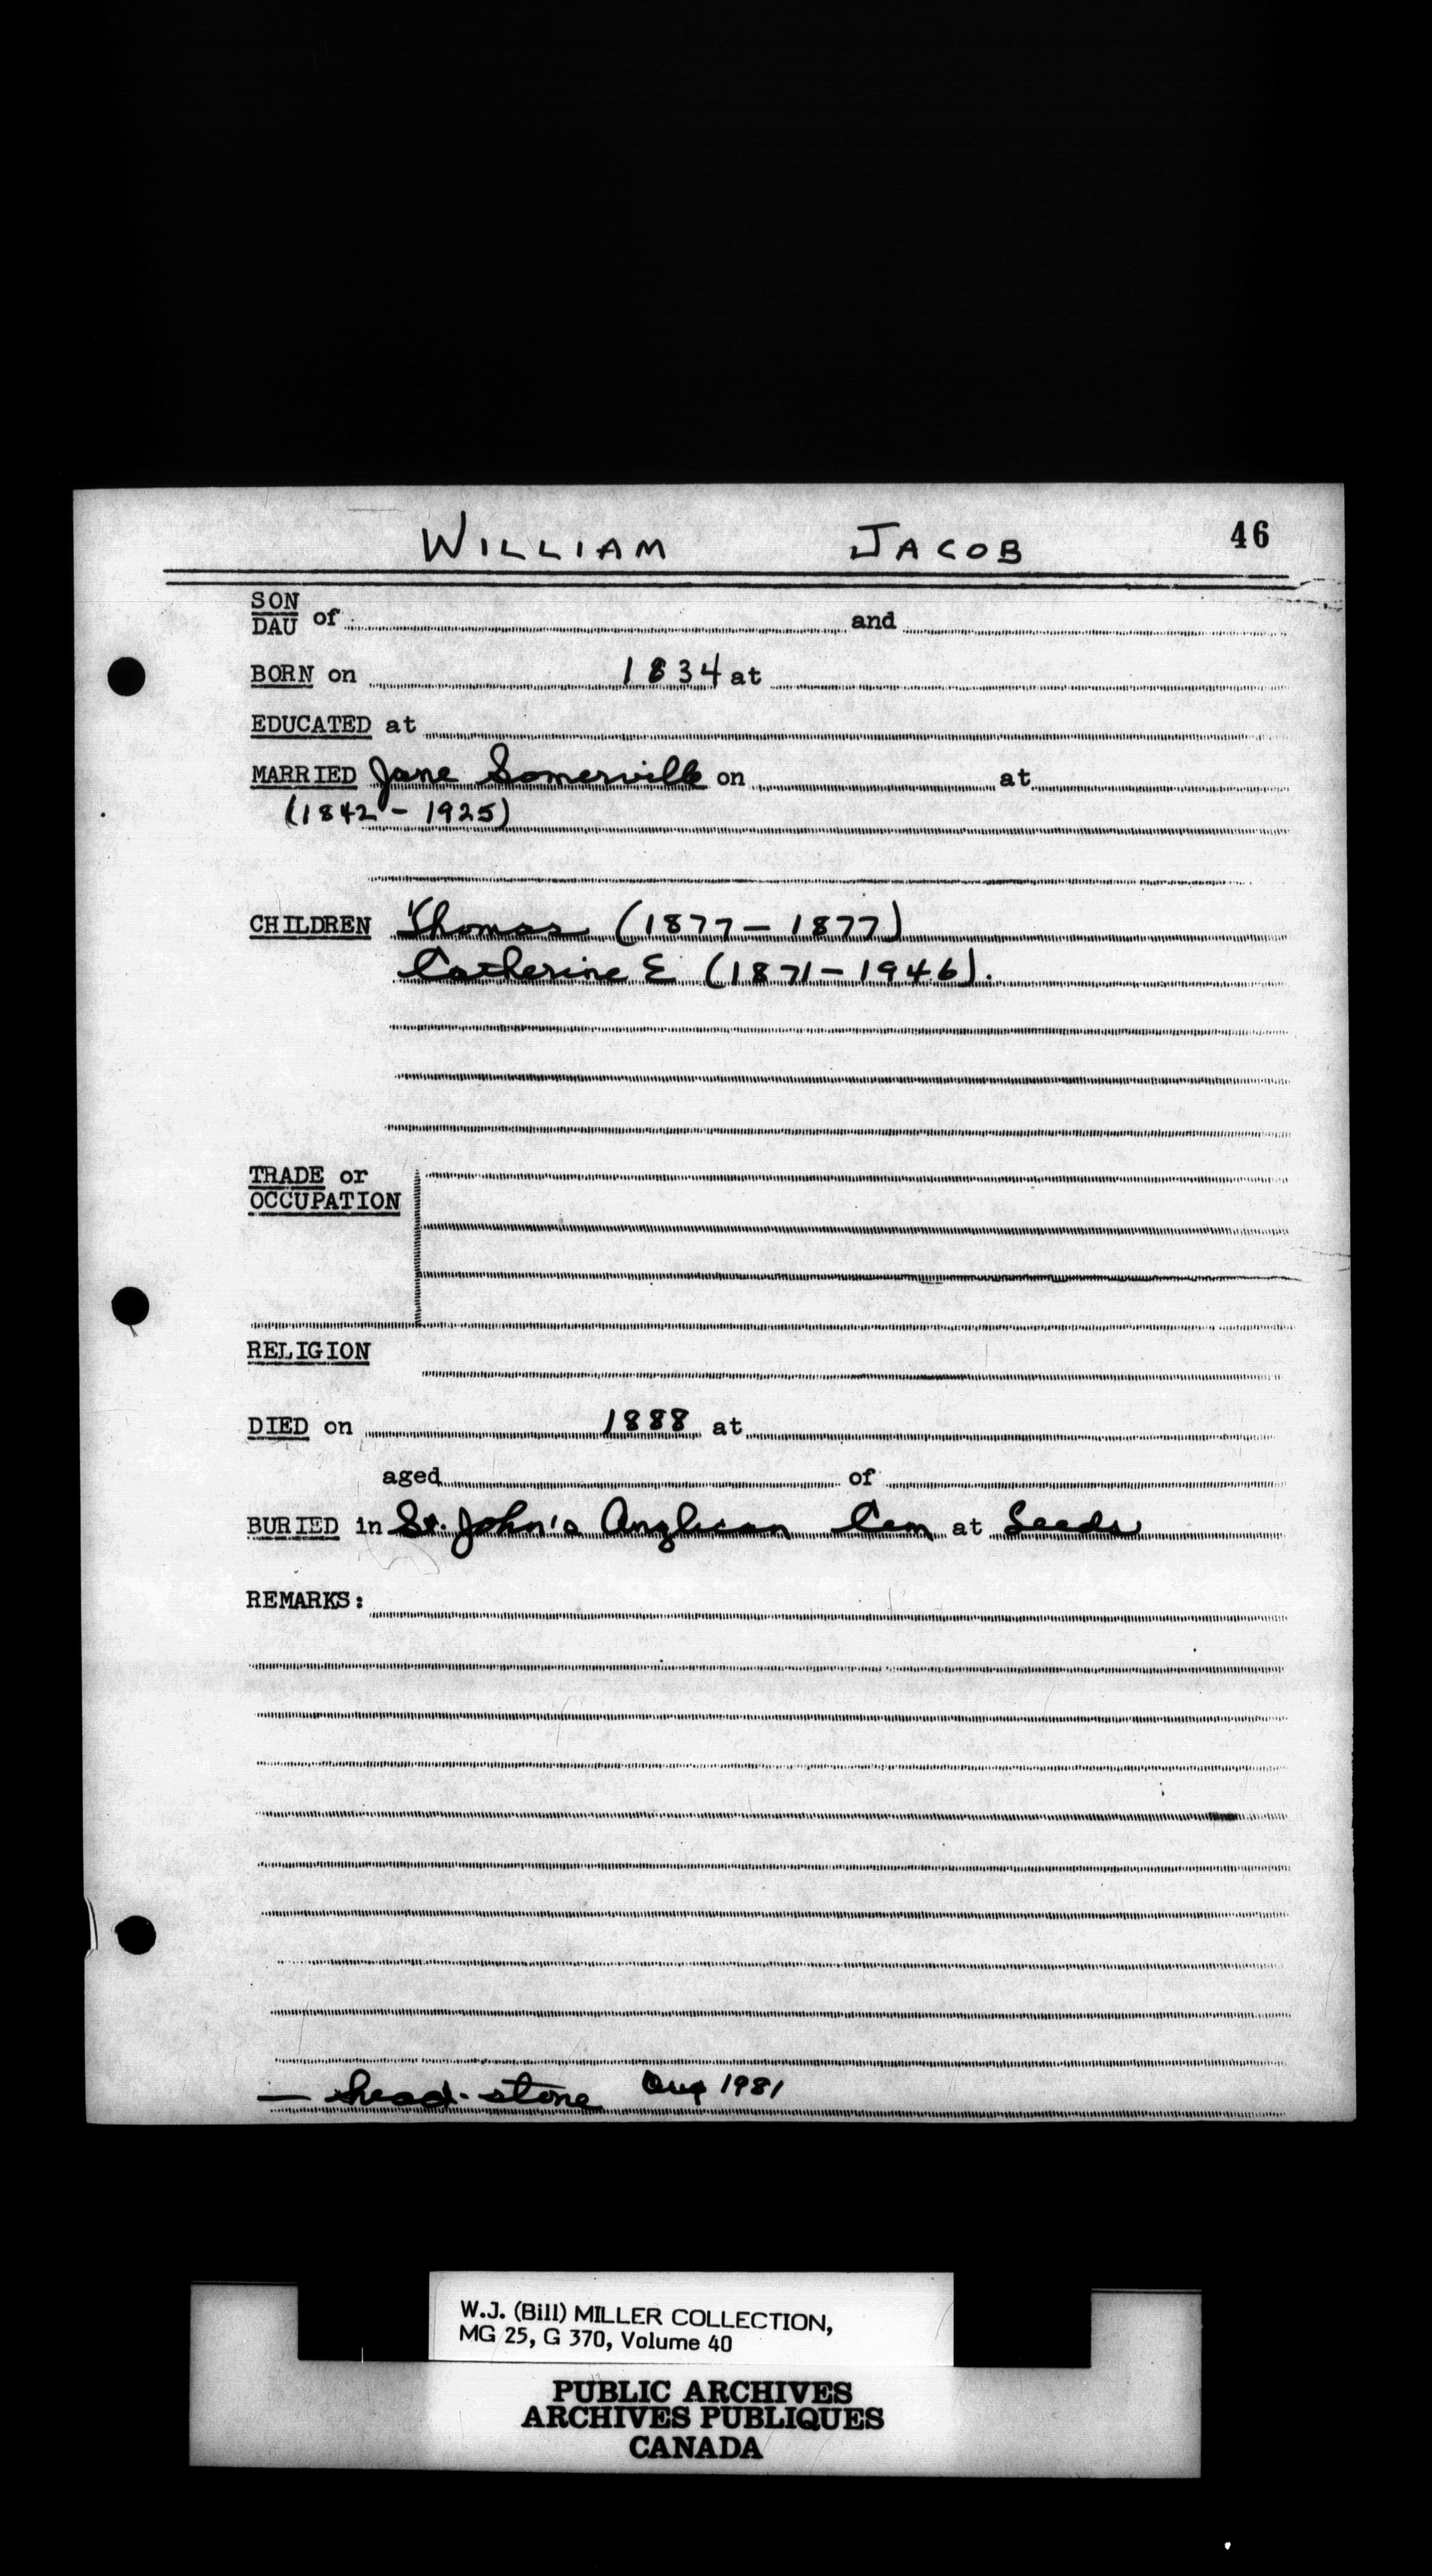 WILLIAM JACOB 46
SON
DAU of and
BORN on 1834 at
EDUCATED at
MARRIED Jane Somerville on at
(1842 - 1925)
CHILDREN Thomas (1877 - 1877)
Catherine E (1871 - 1946).
TRADE or
OCCUPATION
RELIGION
DIED on 1888 at
aged of
BURIED in St. John's Anglican Cem at Leeds
REMARKS:
— head-stone Aug 1981
W.J. (Bill) MILLER COLLECTION,
MG 25, G 370, Volume 40
PUBLIC ARCHIVES
ARCHIVES PUBLIQUES
CANADA